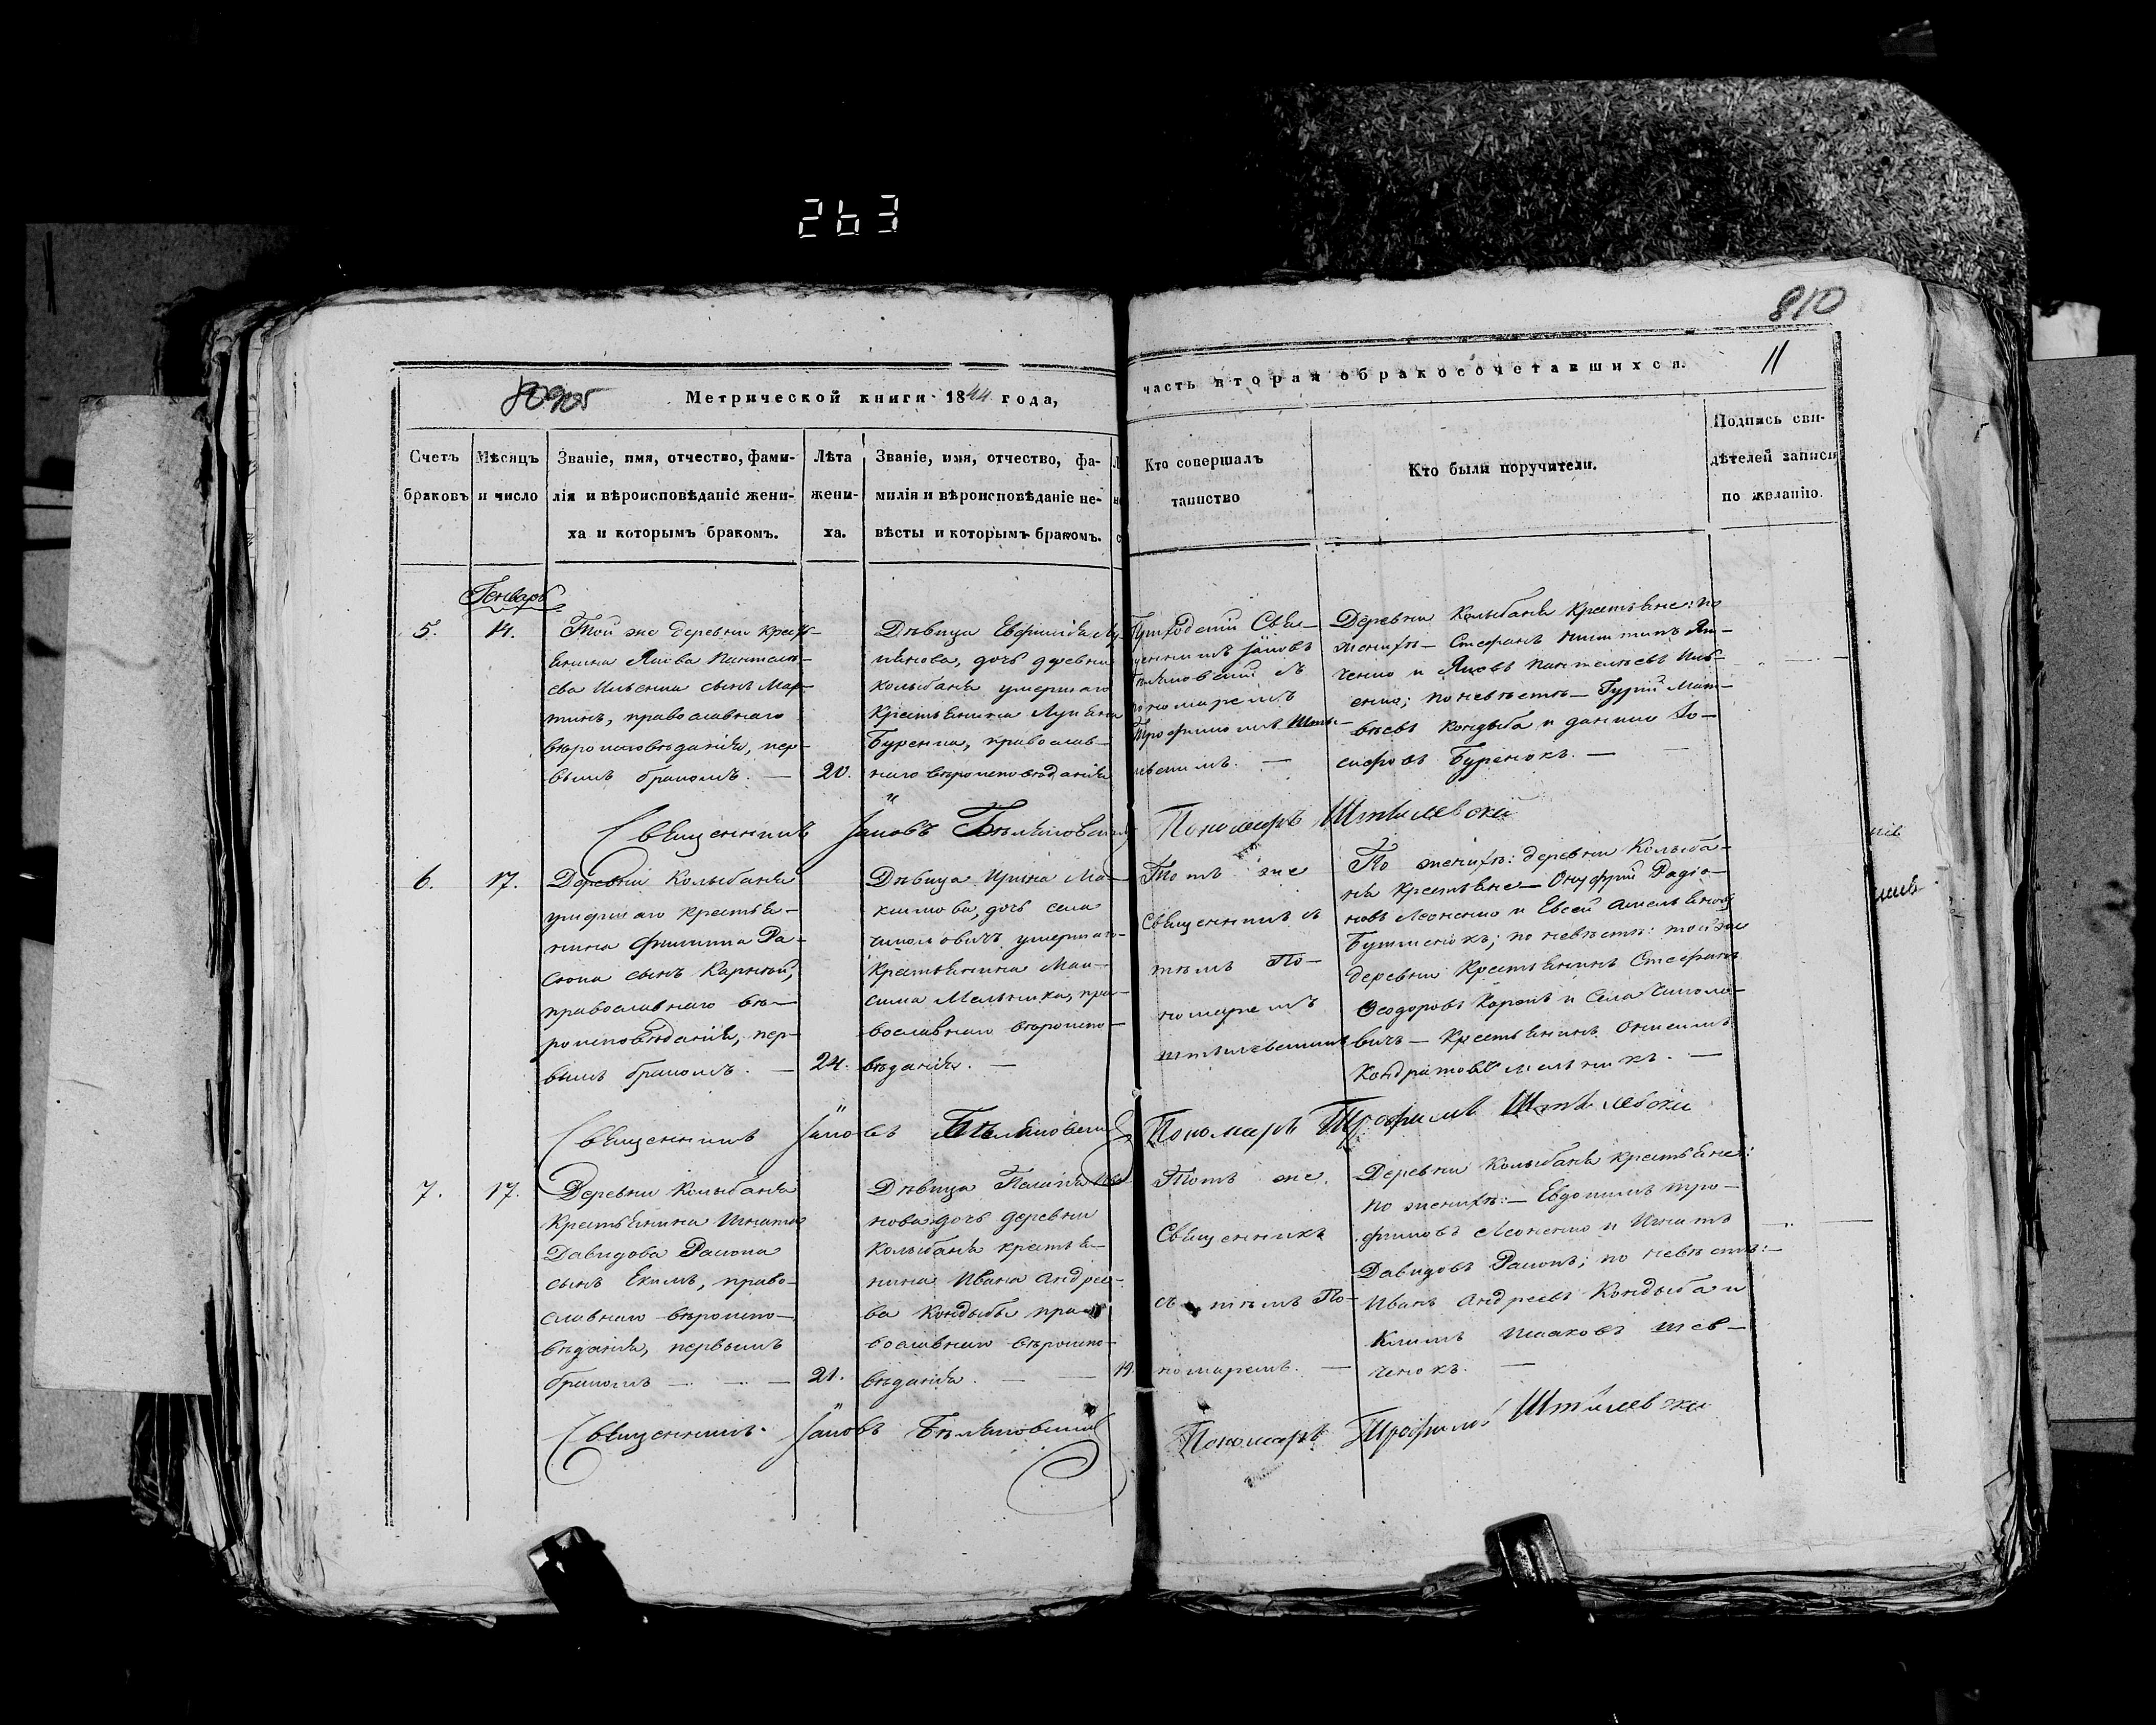 263
810
Метрической книги 1844 года,
часть вторая о бракосочетавшихся.
11
Счетъ
браковъ
Мѣсяцъ
и число
Званіе, имя, отчество, фами-
лія и вѣроисповѣданіе жени-
ха и которымъ бракомъ.
Лѣта
жени-
ха.
Званіе, имя, отчество, фа-
милія и вѣроисповѣданіе не-
вѣсты и которымъ бракомъ.
Кто совершалъ
таинство
Кто были поручители.
Подпись сви-
дѣтелей записи
по желанію.
Генварь
5.
14.
Той же деревни кресть-
янина Якова Пантеле-
ева Ильенка сынъ Мар-
тинъ, православнаго
вѣроисповѣданія, пер-
вымъ бракомъ. —
20.
Дѣвица Евфимія Лу-
кянова, дочь деревни
Колыбаня умершаго
крестьянина Лукяна
Буренка, православ-
наго вѣроисповѣданія
Приходскій Свя-
щенникъ Іаковъ
съ
пономаремъ
Трофимомъ
Деревни Колыбаня крестьяне: по
женихѣ — Стефанъ
и Яковъ Пантелеевъ Иль-
енко; по невѣстѣ — Гурій Мат-
вѣевъ Кондыба и Данило Іо-
сифовъ Буренокъ. —
Священникъ Іаковъ
Пономарь
6.
17.
Деревни Колыбаня
умершаго крестья-
нина Филиппа Ра-
сынъ Карпъ,
православнаго вѣ-
роисповѣданія, пер-
вымъ бракомъ. —
24.
Дѣвица Ирина Ма-
ксимова, дочь села
умершаго
крестьянина Мак-
сима Мельника, пра-
вославнаго вѣроиспо-
вѣданія. —
Тотъ же
Священникъ съ
тѣмъ По-
номаремъ
По женихѣ: деревни Колыба-
ня крестьяне — Онуфрій Радіо-
новъ Леоненко и Евсей
по невѣстѣ: той же
деревни крестьянинъ Стефанъ
Ѳеодоровъ и села
вичъ — крестьянинъ Онисимъ
Кондратовъ Мельникъ. —
Священникъ Іаковъ
Пономарь Трофимъ
7.
17.
Деревни Колыбаня
крестьянина Игната
Давидова
сынъ Екимъ, право-
славнаго вѣроиспо-
вѣданія, первымъ
бракомъ — — —
21.
Дѣвица Пелагія Ива-
нова дочь деревни
Колыбаня крестья-
нина Ивана Андрее-
ва Кондыбы пра-
вославнаго вѣроиспо-
вѣданія. —
19.
Тотъ же
Священникъ
съ тѣмъ По-
номаремъ. —
Деревни Колыбаня крестьяне:
по женихѣ: — Евдокимъ Тро-
фимовъ Леоненко и Игнатъ
Давидовъ по невѣстѣ: —
Иванъ Андреевъ Кондыба и
Климъ Исаковъ Шев-
ченокъ. —
Священникъ Іаковъ
Пономарь Трофимъ